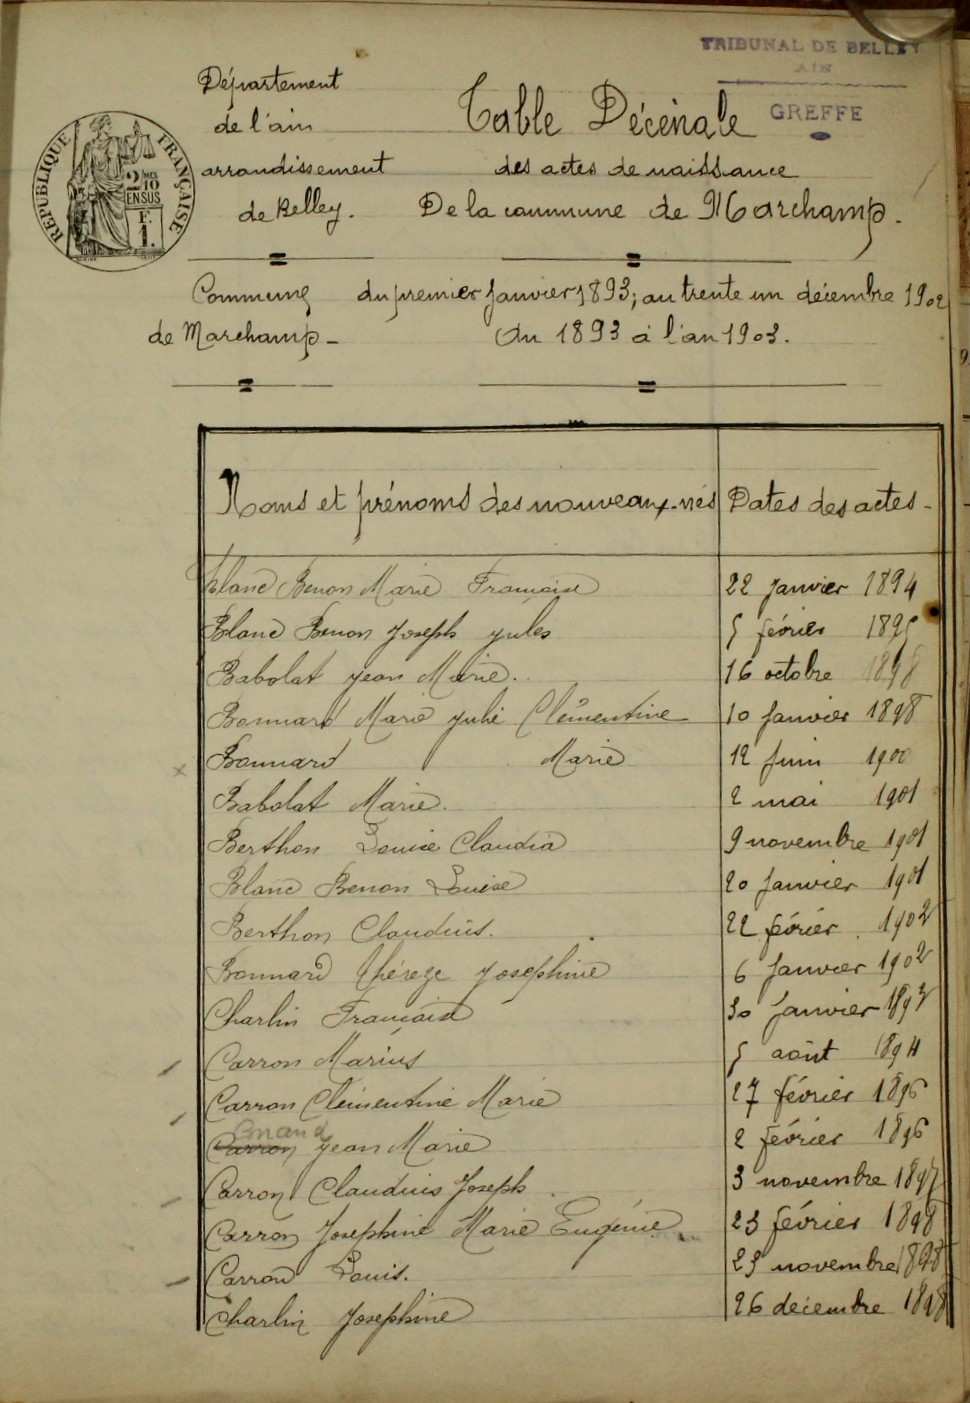 TRIBUNAL DE BELLEY
AIN
GREFFE
Département
de l'ain
arrondissement
de Belley.
RÉPUBLIQUE FRANÇAISE
2/10
EN SUS
F.
1.
Table Décénale
des actes de naissance
De la commune de Marchamp.
Commune
de Marchamp -
du premier janvier 1893, au trente un décembre 1902
Du 1893 à l'an 1903.
Noms et prénoms des nouveaux-nés Dates des actes -
Blanc Benon Marie Française 22 janvier 1894
Blanc Benon Joseph jules 5 février 1895
Babolat jean Marie. 16 octobre 1898
Bonnard Marie julie Clémentine 10 janvier 1898
Bonnard Marie 12 juin 1900
Babolat Marie. 2 mai 1901
Berthon Louise Claudia 9 novembre 1901
Blanc Benon Louise 20 janvier 1901
Berthon Claudius. 22 février 1902
Bonnard Thérèze Josephine 6 janvier 1902
Charlin François 30 janvier 1893
Carron Marius 5 août 1894
Carron Clémentine Marie 27 février 1896
Carron jean Marie 2 février 1896
Carron Claudius Joseph 3 novembre 1897
Carron Josephine Marie Eugénie. 23 février 1898
Carron Louis. 23 novembre 1898
Charlin Josephine 26 décembre 1898